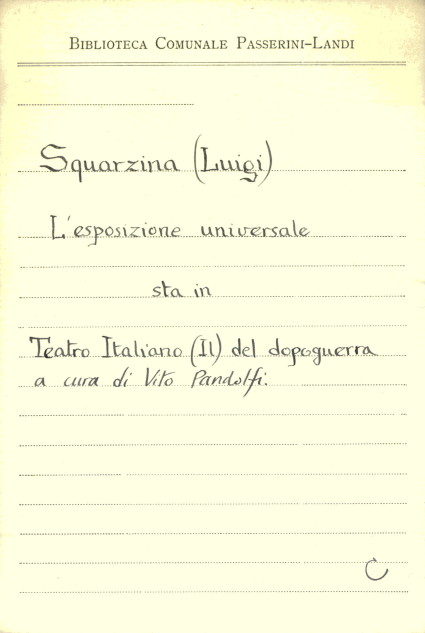 BIBLIOTECA COMUNALE PASSERINI-LANDI
Squarzina (Luigi)
L'esposizione universale
sta in
Teatro Italiano (Il) del dopoguerra
a cura di Vito Pandolfi.